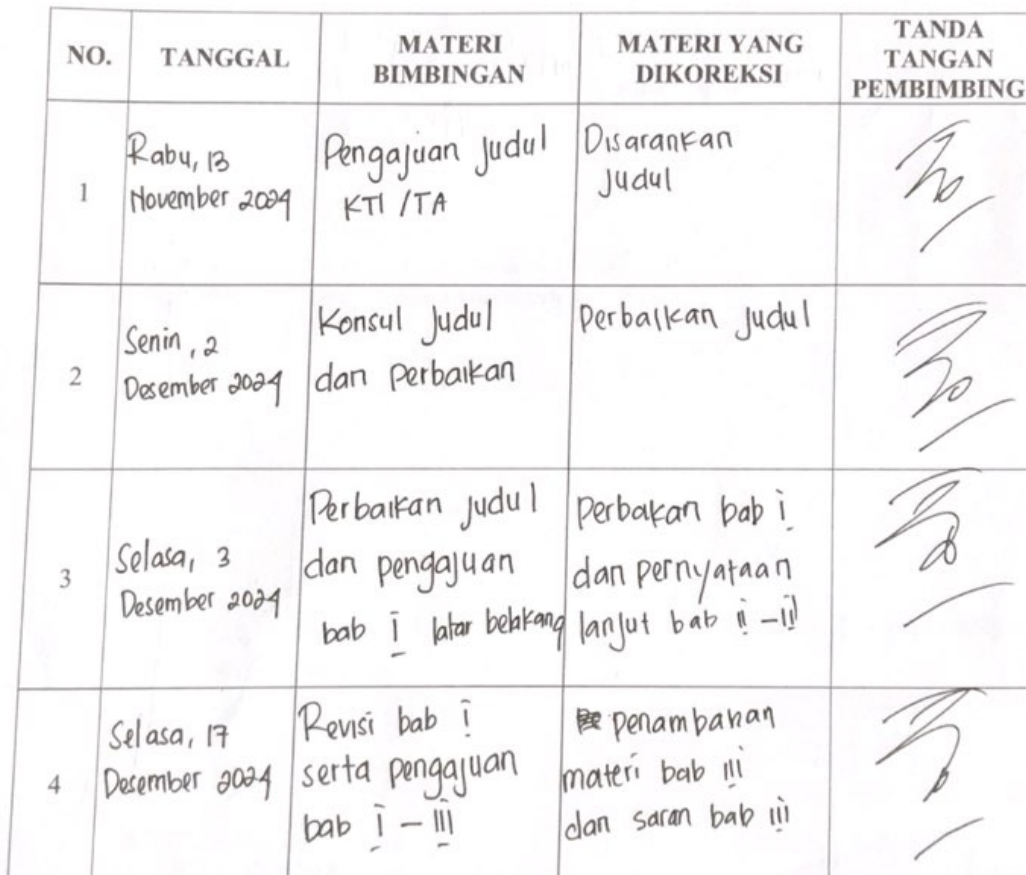 NO. TANGGAL MATERI BIMBINGAN MATERI YANG DIKOREKSI TANDA TANGAN PEMBIMBING
1
Rabu, 13
November 2024
Pengajuan Judul
KTI / TA
Disarankan
Judul
2
Senin, 2
Desember 2024
Konsul Judul
dan Perbaikan
Perbaikan Judul
3
Selasa, 3
Desember 2024
Perbaikan Judul
dan pengajuan
bab I latar belakang
Perbakan bab i
dan pernyataan
lanjut bab ii - iii
4
Selasa, 17
Desember 2024
Revisi bab I
serta pengajuan
bab I - III
penambahan
materi bab III
dan saran bab iii